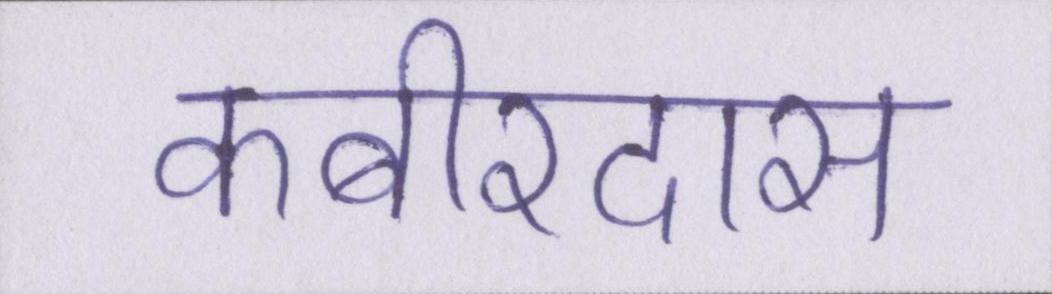 कबीरदास